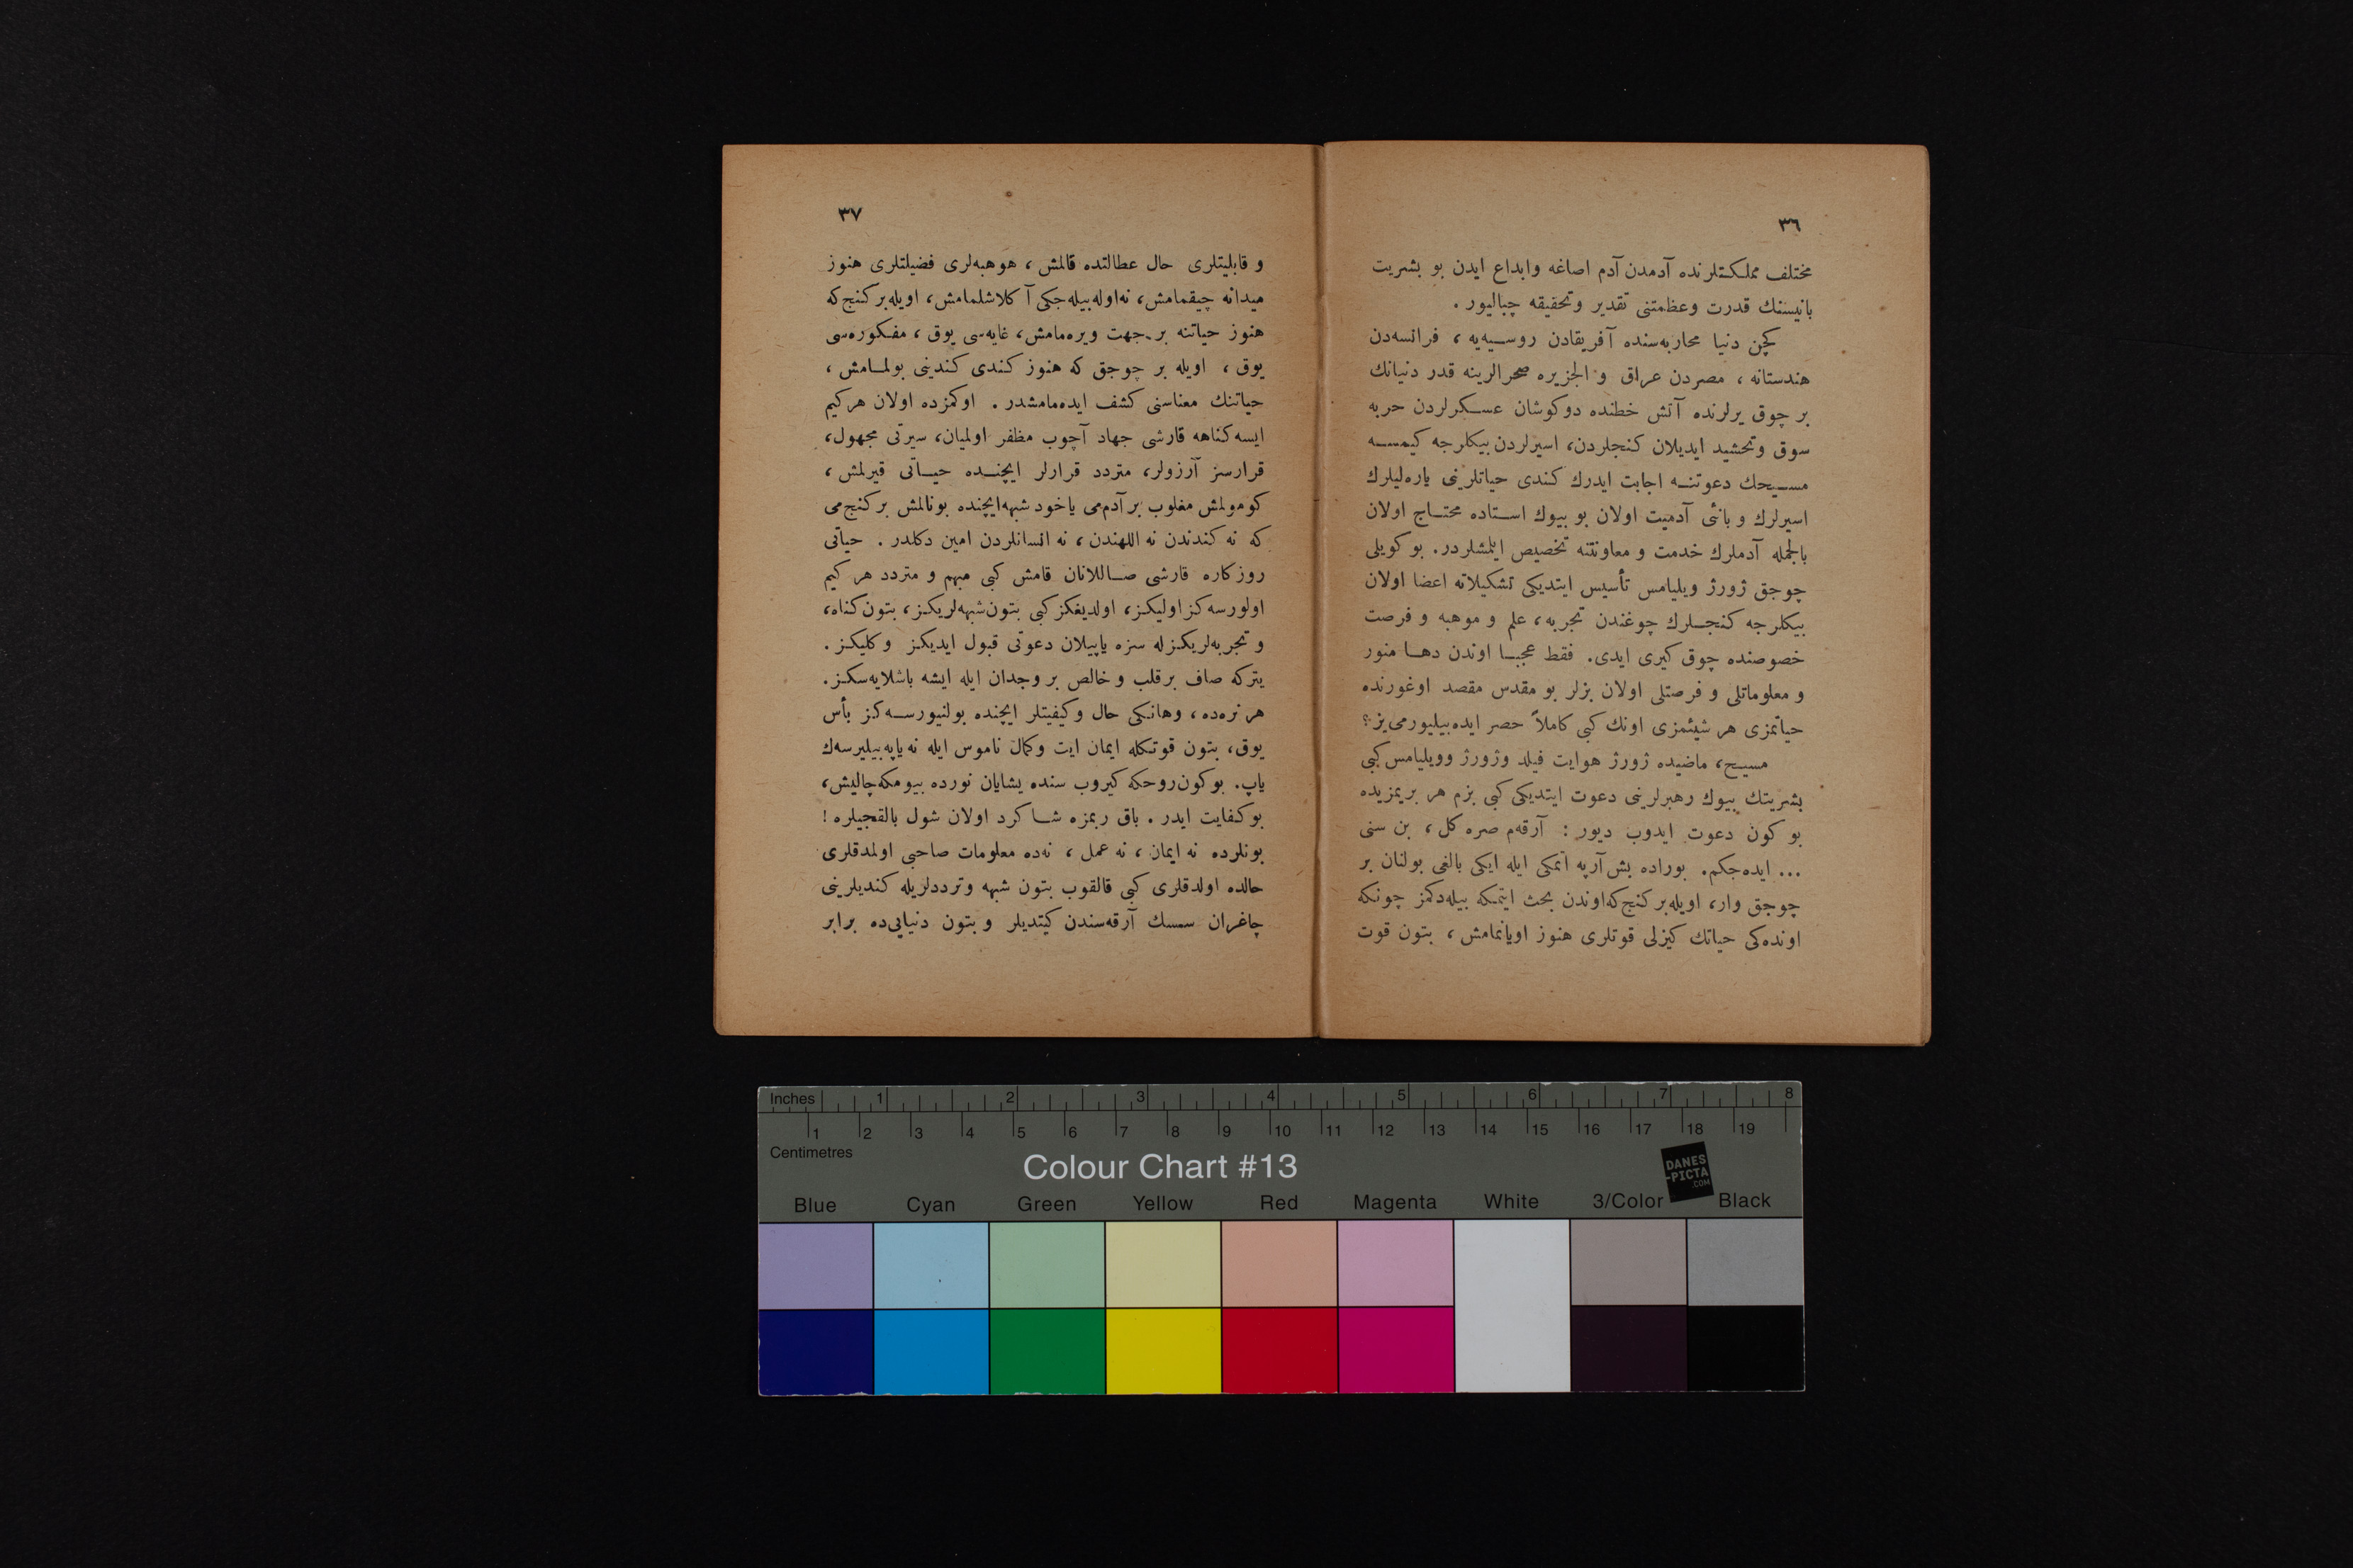 ٣٦
مختلف مملكتلرنده آدمدن آدم اصاغه وابداع ايدن بو بشريت
بانيسنك قدرت وعظمتنى تقدير وتحقيقه چباليور .
كچن دنيا محاربه‌سنده آفريقادن روسيه‌يه ، فرانسه‌دن
هندستانه ، مصردن عراق و الجزيره صحرالرينه قدر دنيانك
بر چوق يرلرنده آتش خطنده دوكوشان عسكرلردن حربه
سوق وتحشيد ايديلان كنجلردن، اسيرلردن بيكلرجه كيمسه
مسيحك دعوتنه اجابت ايدرك كندى حياتلرينى ياره‌ليلرك
اسيرلرك و بانئى آدميت اولان بو بيوك استاده محتاج اولان
بالجمله آدملرك خدمت و معاونتنه تخصيص ايلمشلردر. بو كويلى
چوجق ژورژ ويليامس تأسيس ايتديكى تشكيلاته اعضا اولان
بيكلرجه كنجلرك چوغندن تجربه، علم و موهبه و فرصت
خصوصنده چوق كيرى ايدى. فقط عجبا اوندن دها منور
و معلوماتلى و فرصتلى اولان بزلر بو مقدس مقصد اوغورنده
حياتمزى هر شيئمزى اونك كبى كاملاً حصر ايده بيليورمى‌يز؟
مسيح، ماضيده ژورژ هوايت فيلد وژورژ وويليامس كبى
بشريتك بيوك رهبرلرينى دعوت ايتديكى كبى بزم هر بريمزيده
بو كون دعوت ايدوب ديور : آرقه‌م صره كل، بن سنى
... ايده‌جكم. بوراده بش آرپه اتمكى ايله ايكى بالغى بولنان بر
چوجق وار، اويله بر كنج كه اوندن بحث ايتمكه بيله‌دكمز چونكه
اونده‌كى حياتك كيزلى قوتلرى هنوز اويانمامش ، بتون قوت
٣٧
و قابليتلرى حال عطالتده قالمش ، موهبه‌لرى فضيلتلرى هنوز
ميدانه چيقمامش، نه‌اوله بيله‌جكى آ كلاشلمامش، اويله بر كنج كه
هنوز حياتنه بر جهت ويره‌مامش، غايه‌سى يوق ، مفكوره‌سى
يوق ، اويله بر چوجق كه هنوز كندى كندينى بولمامش ،
حياتنك معناسنى كشف ايده‌مامشدر . اوكمزده اولان هركيم
ايسه كناهه قارشى جهاد آچوب مظفر اولميان، سيرتى مجهول،
قرارسز آرزولر، متردد قرارلر ايچنده حياتى قيرلمش ،
كومولمش مغلوب بر آدم‌مى ياخود شبهه ايچنده بونالمش بر كنج‌مى
كه نه كندندن نه اللهندن ، نه انسانلردن امين دكلدر . حياتى
روزكاره قارشى صاللانان قامش كبى مبهم و متردد هر كيم
اولورسه‌كز اوليكز، اولديغكز كبى بتون شبهه‌لريكز، بتون كناه،
و تجربه‌لريكزله سزه ياپيلان دعوتى قبول ايديكز وكليكز .
يتركه صاف بر قلب و خالص بر وجدان ايله ايشه باشلايه‌سكز.
هر نره‌ده ، وهانكى حال وكيفيتلر ايچنده بولنيورسه‌كز بأس
يوق، بتون قوتكله ايمان ايت وكمال ناموس ايله نه ياپه‌بيليرسه‌ك
ياپ. بو كون روحكه كيروب سنده يشايان نورده بيومكه چاليش،
بو كفايت ايدر . باق ربمزه شاكرد اولان شول بالقجيلره !
بونلرده نه ايمان ، نه عمل ، نه‌ده معلومات صاحبى اولمدقلرى
حالده اولدقلرى كبى قالقوب بتون شبهه وترددلريله كنديلرينى
چاغران سسك آرقه‌سندن كيتديلر و بتون دنيايى‌ده برابر
Inches 1 2 3 4 5 6 7 8
1 2 3 4 5 6 7 8 9 10 11 12 13 14 15 16 17 18 19
Centimetres
Colour Chart #13
DANES
-PICTA
.COM
Blue Cyan Green Yellow Red Magenta White 3/Color Black